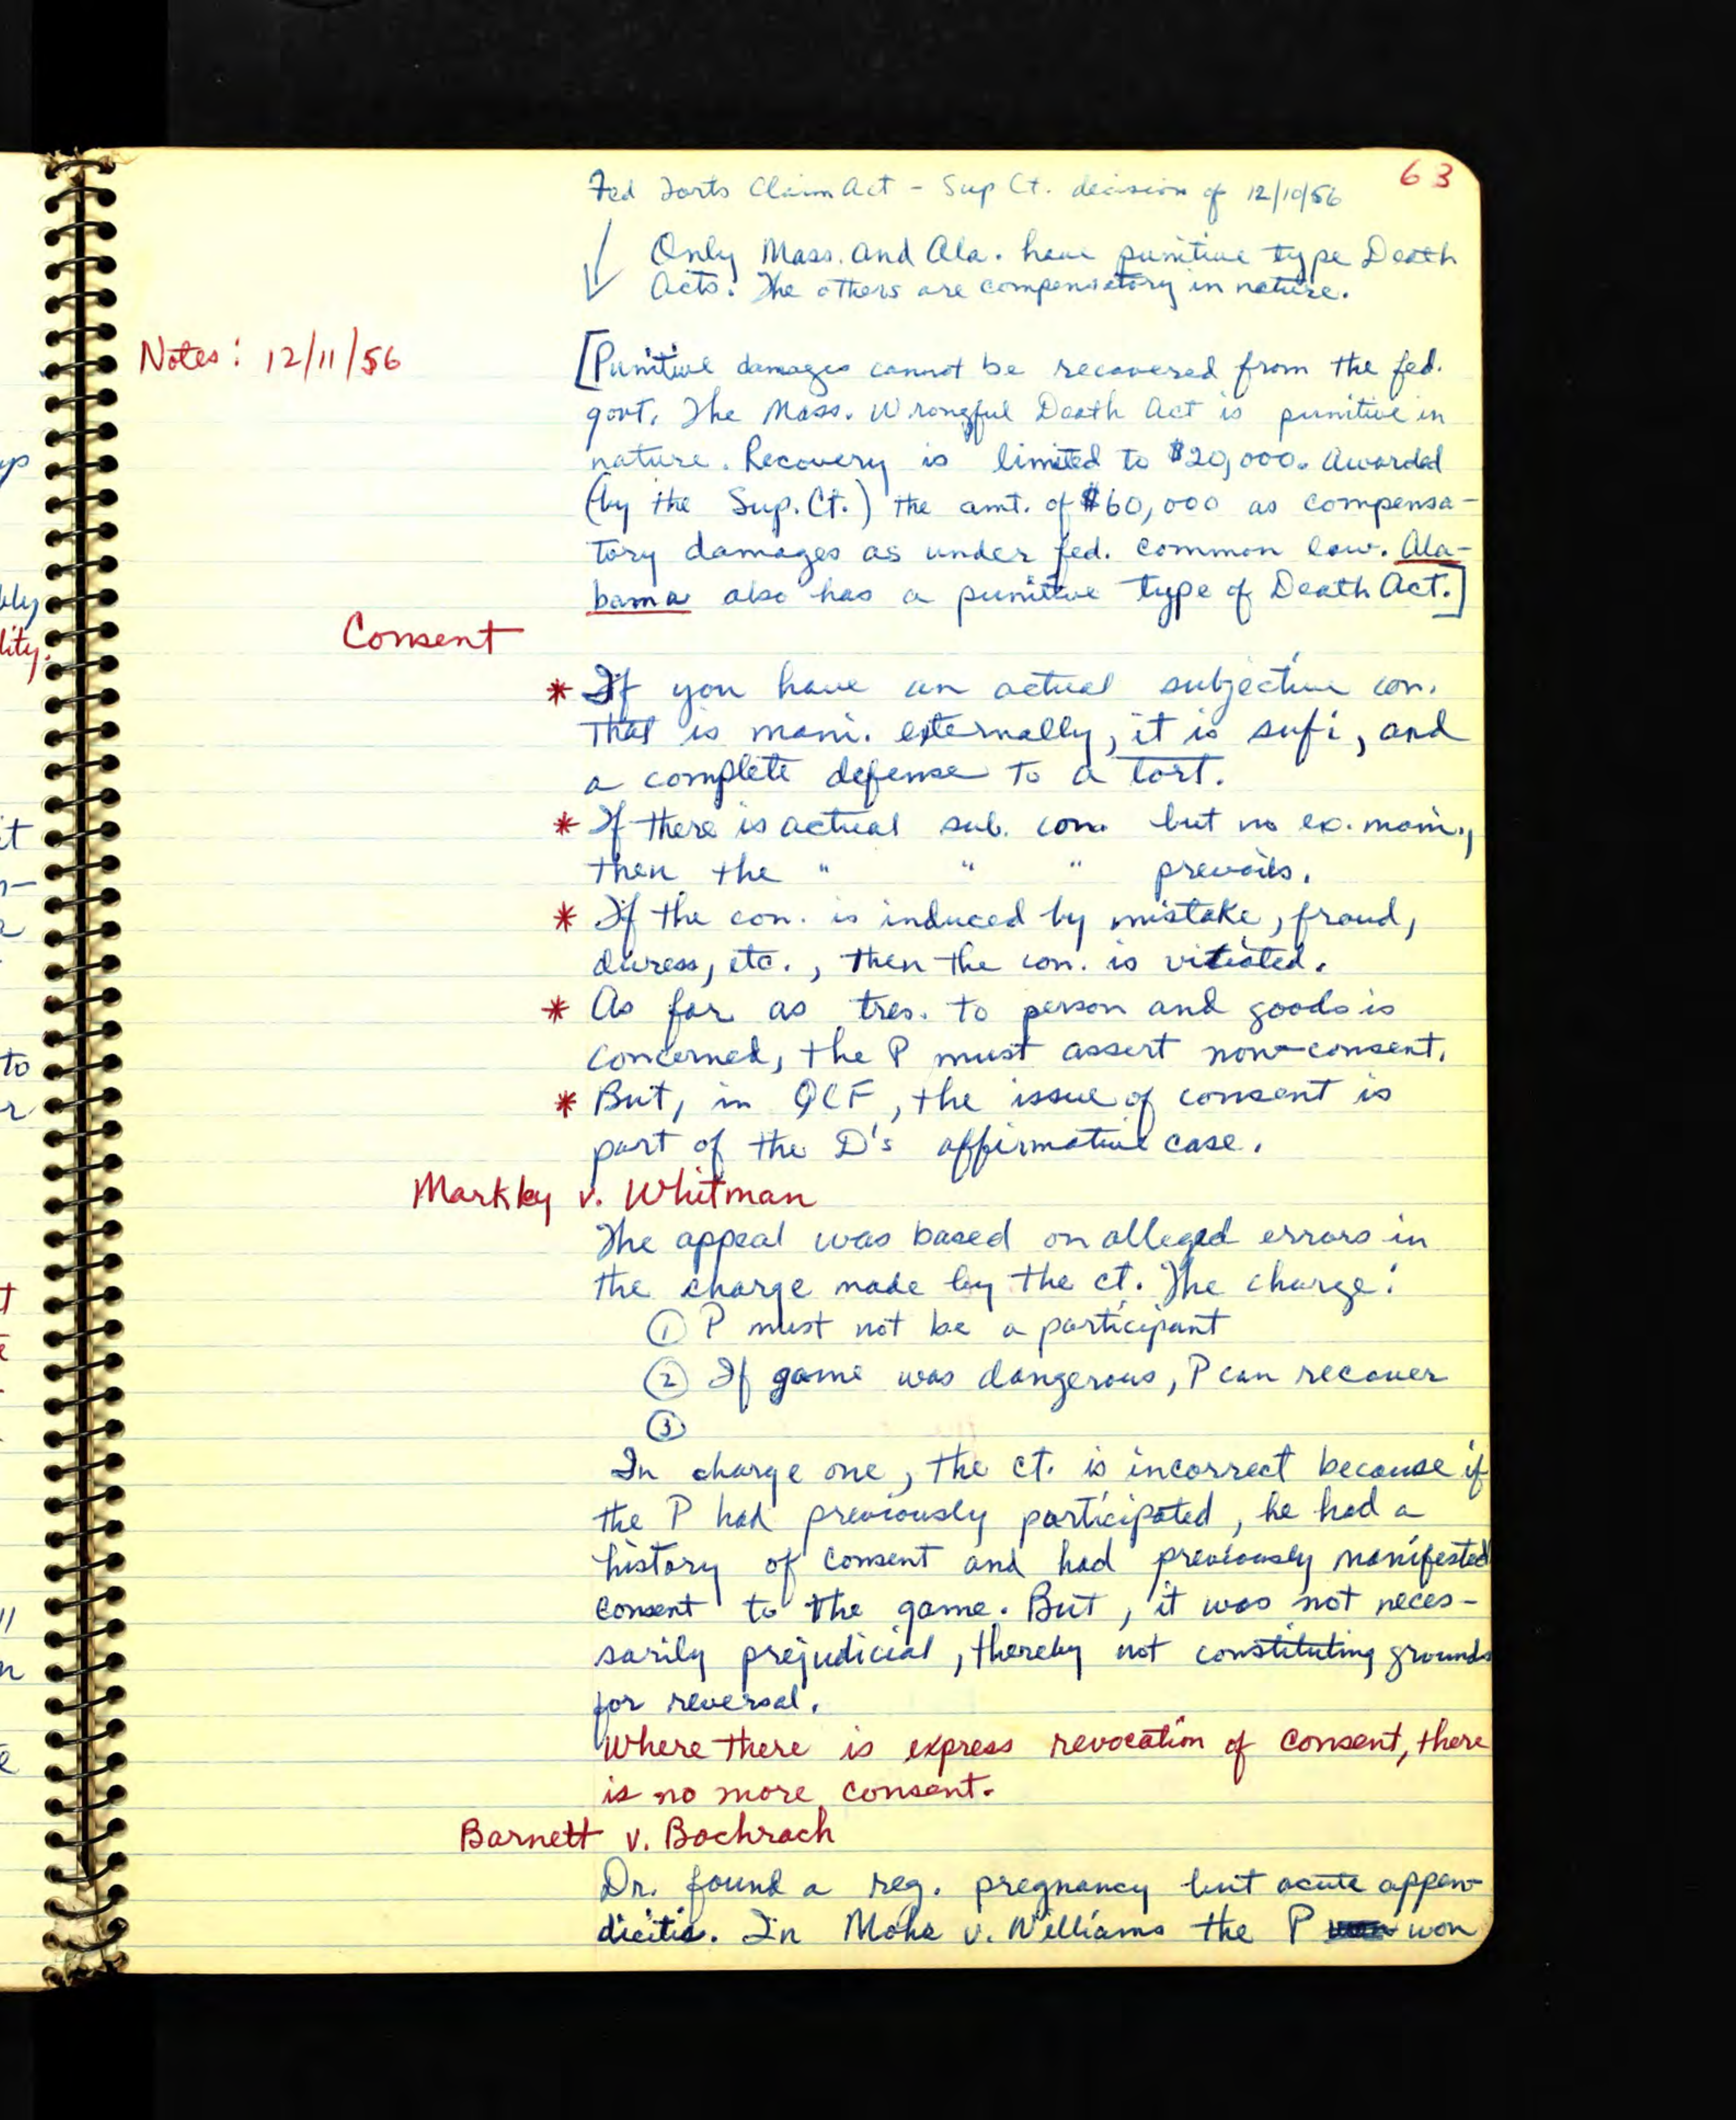 63
Fed Torts Claim Act - Sup Ct. decision of 12/10/56
Only Mass. and Ala. have punitive type Death
Acts. The others are compensatory in nature.
Notes: 12/11/56
[Punitive damages cannot be recovered from the fed.
govt. The Mass. Wrongful Death Act is punitive in
nature. Recovery is limited to $20,000. Awarded
(by the Sup. Ct.) the amt. of $60,000 as compensa-
tory damages as under fed. common law. Ala-
bama also has a punitive type of Death Act.]
Consent
* If you have an actual subjective con.
that is mani. externally, it is sufi, and
a complete defense to a tort.
* If there is actual sub. con. but no ex. mani.,
then the " " " prevails.
* If the con. is induced by mistake, fraud,
duress, etc., then the con. is vitiated.
* As far as tres. to person and goods is
concerned, the P must assert non-consent.
* But, in QCF, the issue of consent is
part of the D's affirmative case.
Markley v. Whitman
The appeal was based on alleged errors in
the charge made by the ct. The charge:
① P must not be a participant
② If game was dangerous, P can recover
③
In charge one, the ct. is incorrect because if
the P had previously participated, he had a
history of consent and had previously manifested
consent to the game. But, it was not neces-
sarily prejudicial, thereby not constituting grounds
for reversal.
Where there is express revocation of consent, there
is no more consent.
Barnett v. Bachrach
Dr. found a reg. pregnancy but acute appen-
dicitis. In Mohr v. Williams the P won
yp
bly
lity.
it
n-
to
r
t
e
"
n
e